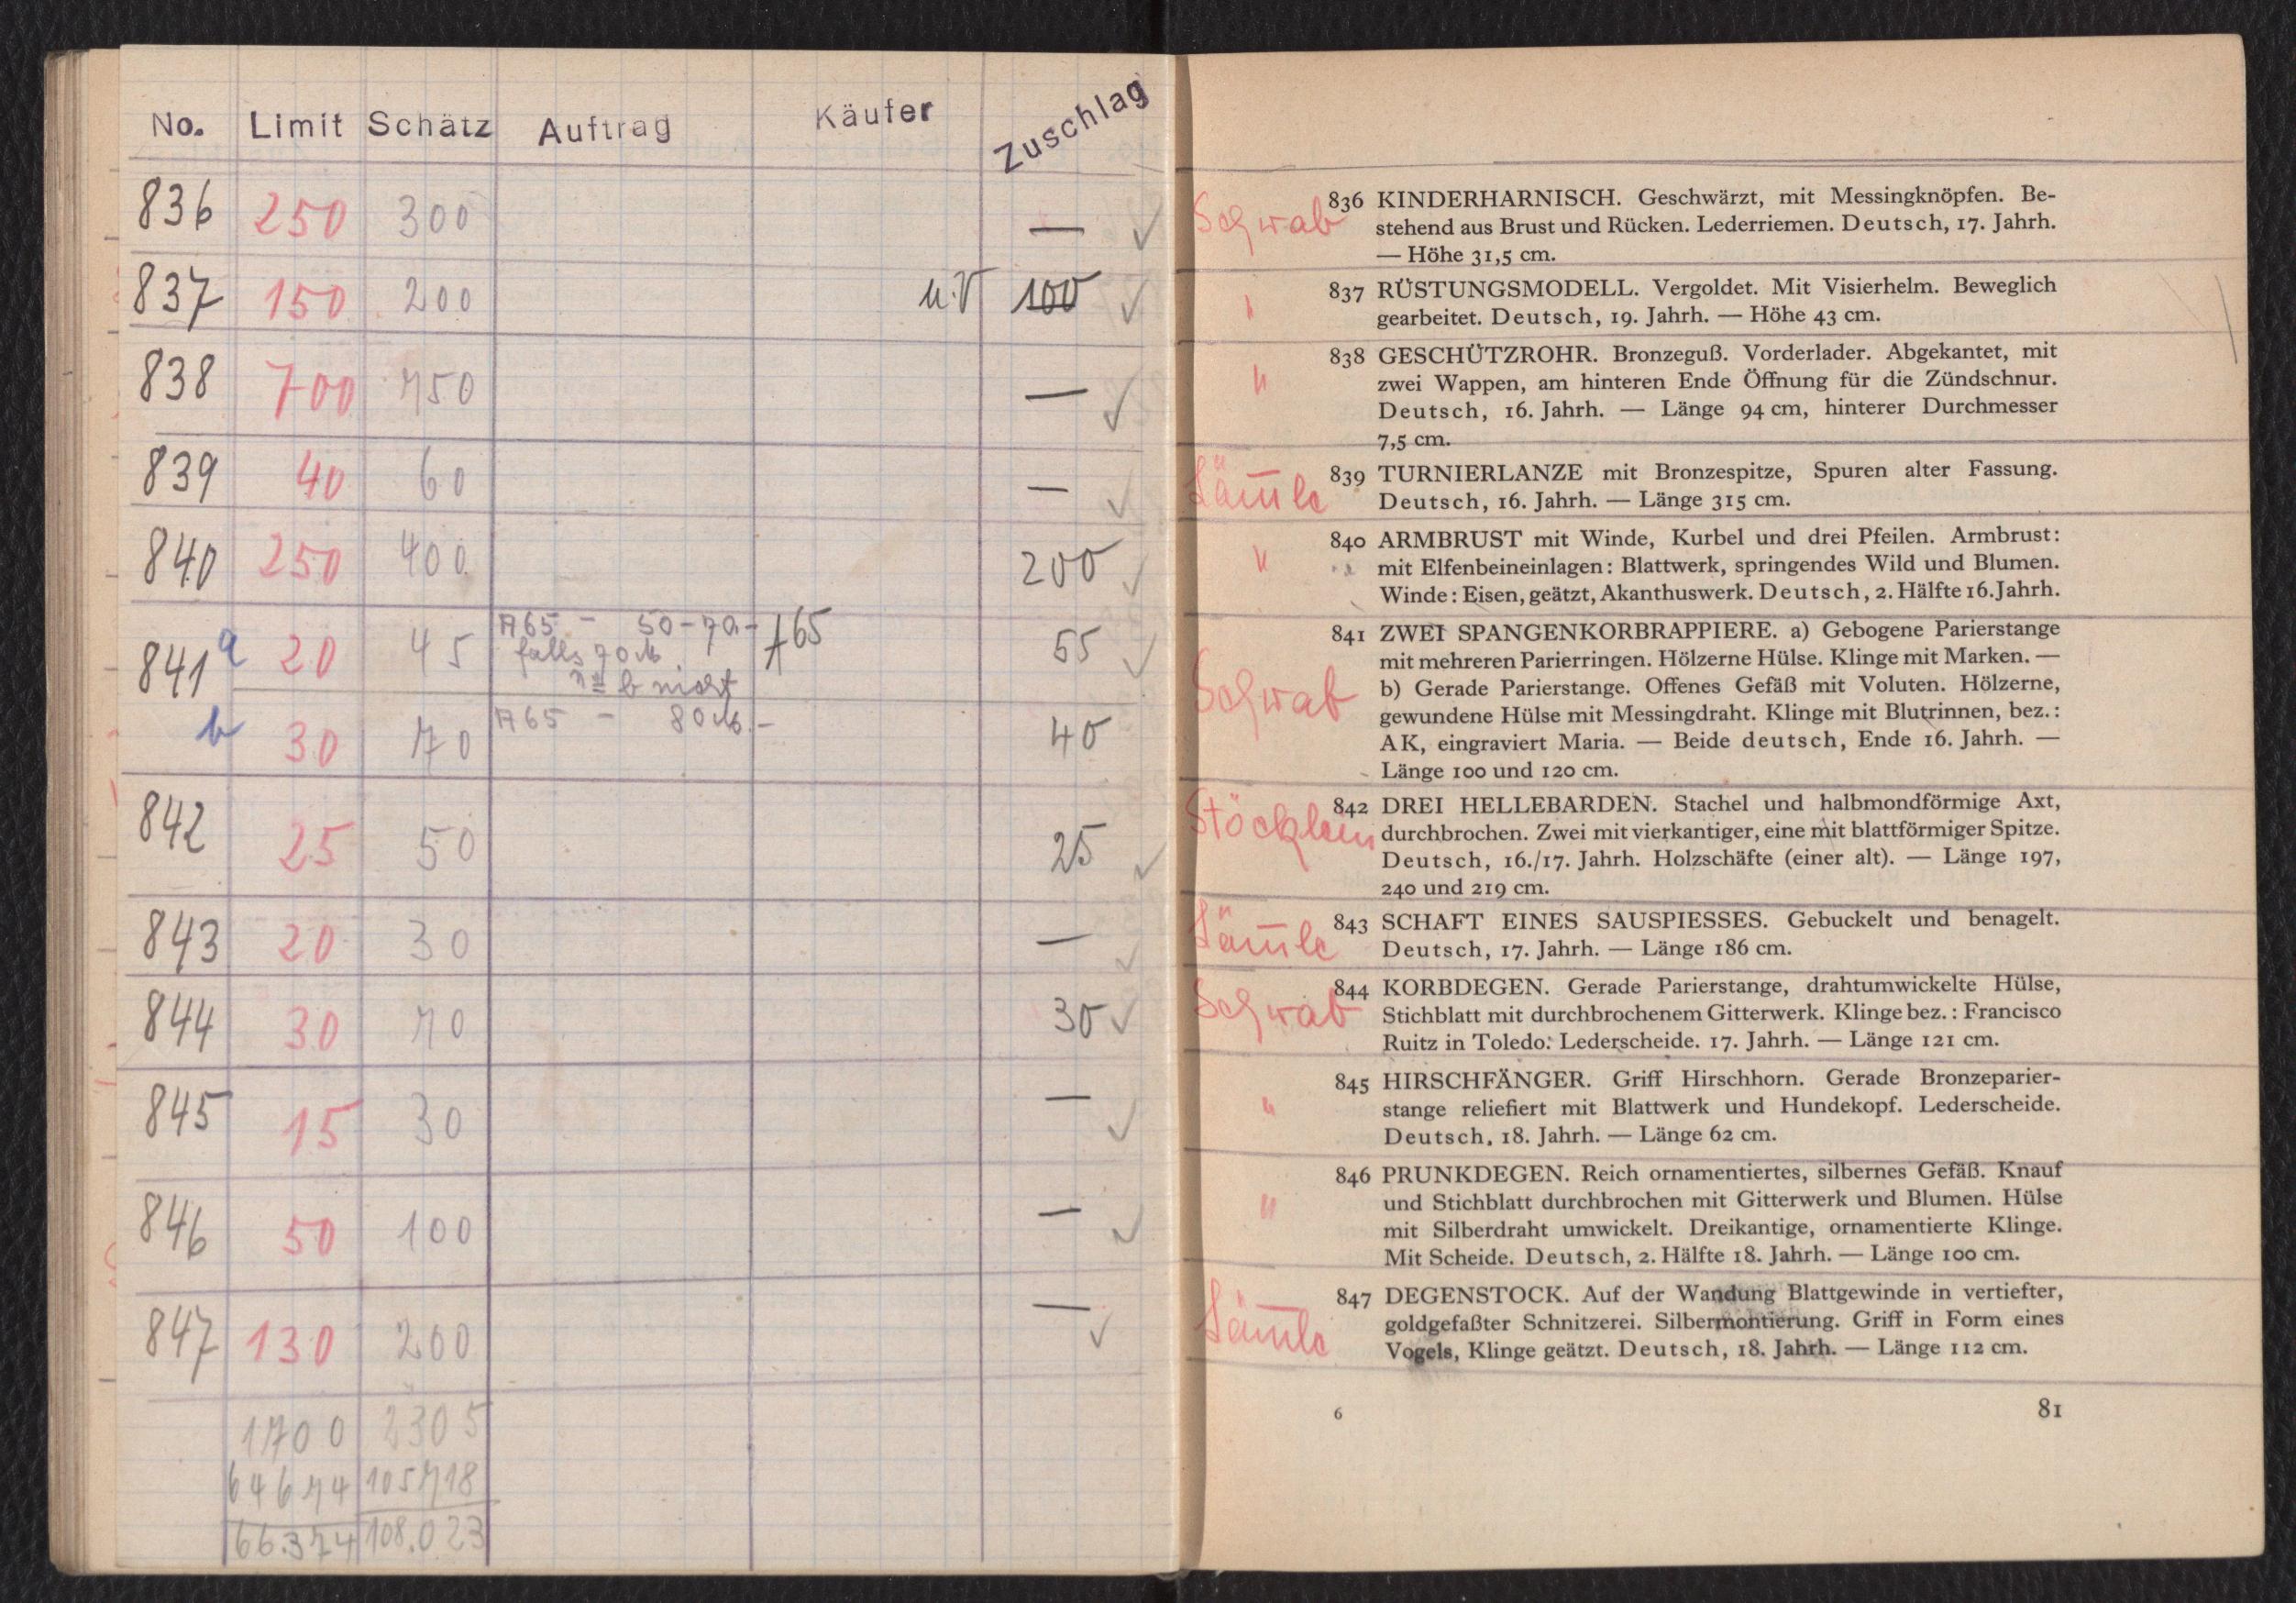 No. Limit Schätz Auftrag Käufer Zuschlag
836 250 300 — ✓
837 150 200 u.V 100 ✓
838 700 750 — ✓
839 40 60 — ✓
840 250 400 200 ✓
841 a 20 45 A65 – 50–70.– A65 55 ✓
falls 70 M
b nicht
b 30 70 A65 – 80 M.– 40
842 25 50 25 ✓
843 20 30 — ✓
844 30 70 30 ✓
845 15 30 — ✓
846 50 100 — ✓
847 130 200 — ✓
1700 2305
64674 105718
66.374 108.023
Schwab
836 KINDERHARNISCH. Geschwärzt, mit Messingknöpfen. Be-
stehend aus Brust und Rücken. Lederriemen. Deutsch, 17. Jahrh.
— Höhe 31,5 cm.
"
837 RÜSTUNGSMODELL. Vergoldet. Mit Visierhelm. Beweglich
gearbeitet. Deutsch, 19. Jahrh. — Höhe 43 cm.
"
838 GESCHÜTZROHR. Bronzeguß. Vorderlader. Abgekantet, mit
zwei Wappen, am hinteren Ende Öffnung für die Zündschnur.
Deutsch, 16. Jahrh. — Länge 94 cm, hinterer Durchmesser
7,5 cm.
839 TURNIERLANZE mit Bronzespitze, Spuren alter Fassung.
Deutsch, 16. Jahrh. — Länge 315 cm.
"
840 ARMBRUST mit Winde, Kurbel und drei Pfeilen. Armbrust:
mit Elfenbeineinlagen: Blattwerk, springendes Wild und Blumen.
Winde: Eisen, geätzt, Akanthuswerk. Deutsch, 2. Hälfte 16. Jahrh.
Schwab
841 ZWEI SPANGENKORBRAPPIERE. a) Gebogene Parierstange
mit mehreren Parierringen. Hölzerne Hülse. Klinge mit Marken. —
b) Gerade Parierstange. Offenes Gefäß mit Voluten. Hölzerne,
gewundene Hülse mit Messingdraht. Klinge mit Blutrinnen, bez.:
AK, eingraviert Maria. — Beide deutsch, Ende 16. Jahrh. —
Länge 100 und 120 cm.
Stöcklein
842 DREI HELLEBARDEN. Stachel und halbmondförmige Axt,
durchbrochen. Zwei mit vierkantiger, eine mit blattförmiger Spitze.
Deutsch, 16./17. Jahrh. Holzschäfte (einer alt). — Länge 197,
240 und 219 cm.
843 SCHAFT EINES SAUSPIESSES. Gebuckelt und benagelt.
Deutsch, 17. Jahrh. — Länge 186 cm.
Schwab
844 KORBDEGEN. Gerade Parierstange, drahtumwickelte Hülse,
Stichblatt mit durchbrochenem Gitterwerk. Klinge bez.: Francisco
Ruitz in Toledo. Lederscheide. 17. Jahrh. — Länge 121 cm.
"
845 HIRSCHFÄNGER. Griff Hirschhorn. Gerade Bronzeparier-
stange reliefiert mit Blattwerk und Hundekopf. Lederscheide.
Deutsch, 18. Jahrh. — Länge 62 cm.
"
846 PRUNKDEGEN. Reich ornamentiertes, silbernes Gefäß. Knauf
und Stichblatt durchbrochen mit Gitterwerk und Blumen. Hülse
mit Silberdraht umwickelt. Dreikantige, ornamentierte Klinge.
Mit Scheide. Deutsch, 2. Hälfte 18. Jahrh. — Länge 100 cm.
847 DEGENSTOCK. Auf der Wandung Blattgewinde in vertiefter,
goldgefaßter Schnitzerei. Silbermontierung. Griff in Form eines
Vogels, Klinge geätzt. Deutsch, 18. Jahrh. — Länge 112 cm.
6 81